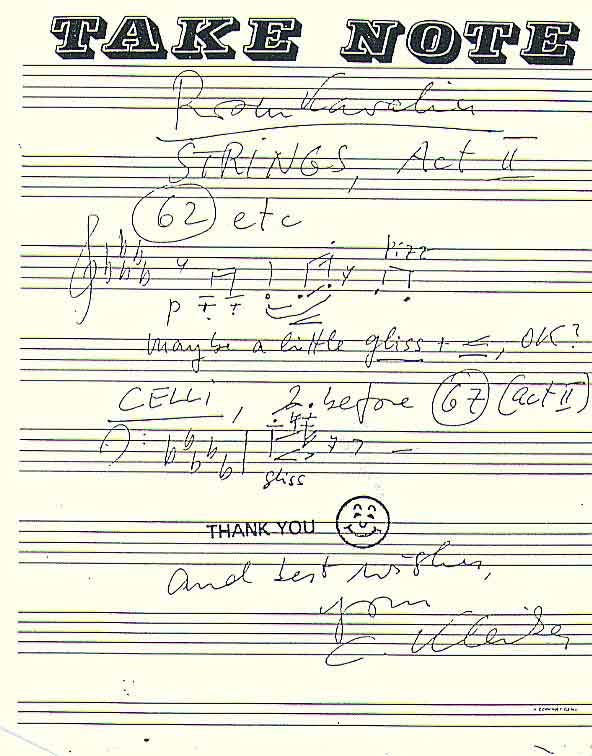 TAKE NOTE
Rosenkavalier
STRINGS, Act II
62 etc
pizz
p
maybe a little gliss + <, OK?
CELLI, 2. before 67 (Act II)
gliss
THANK YOU
and best wishes,
your
C. Kleiber